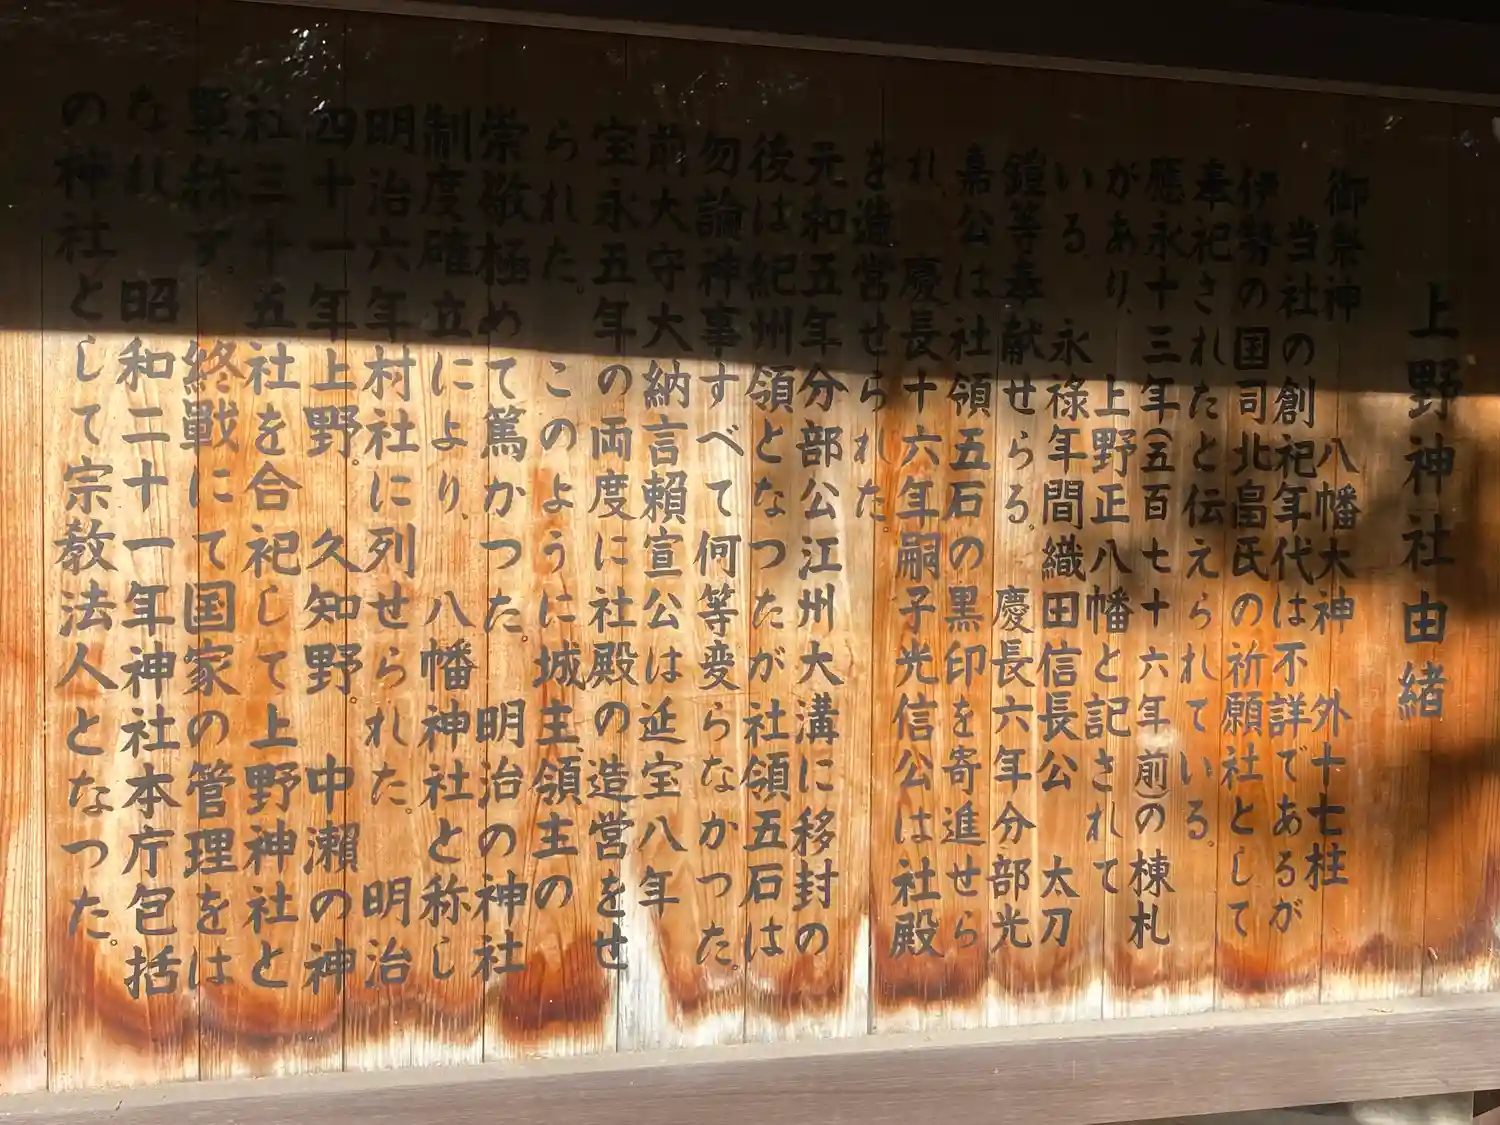 上野神社由緒
御祭神　八幡大神　外十七柱
当社の創祀年代は不詳であるが
伊勢の国司北畠氏の祈願社として
奉祀されたと伝えられている。
應永十三年(五百七十六年前)の棟札
があり、上野正八幡と記されて
いる。永禄年間織田信長公　太刀
鎧等奉献せらる。慶長六年分部光
嘉公は社領五石の黒印を寄進せら
れ、慶長十六年嗣子光信公は社殿
を造営せられた。
元和五年分部公江州大溝に移封の
後は紀州領となつたが社領五石は
勿論神事すべて何等変らなかつた。
前大守大納言頼宣公は延宝八年
宝永五年の両度に社殿の造営をせ
られた。このように城主、領主の
崇敬極めて篤かつた。明治の神社
制度確立により、八幡神社と称し
明治六年村社に列せられた。明治
四十一年上野。久知野。中瀬の神
社三十五社を合祀して上野神社と
単称す。終戦にて国家の管理をは
なれ　昭和二十一年神社本庁包括
の神社として宗教法人となつた。